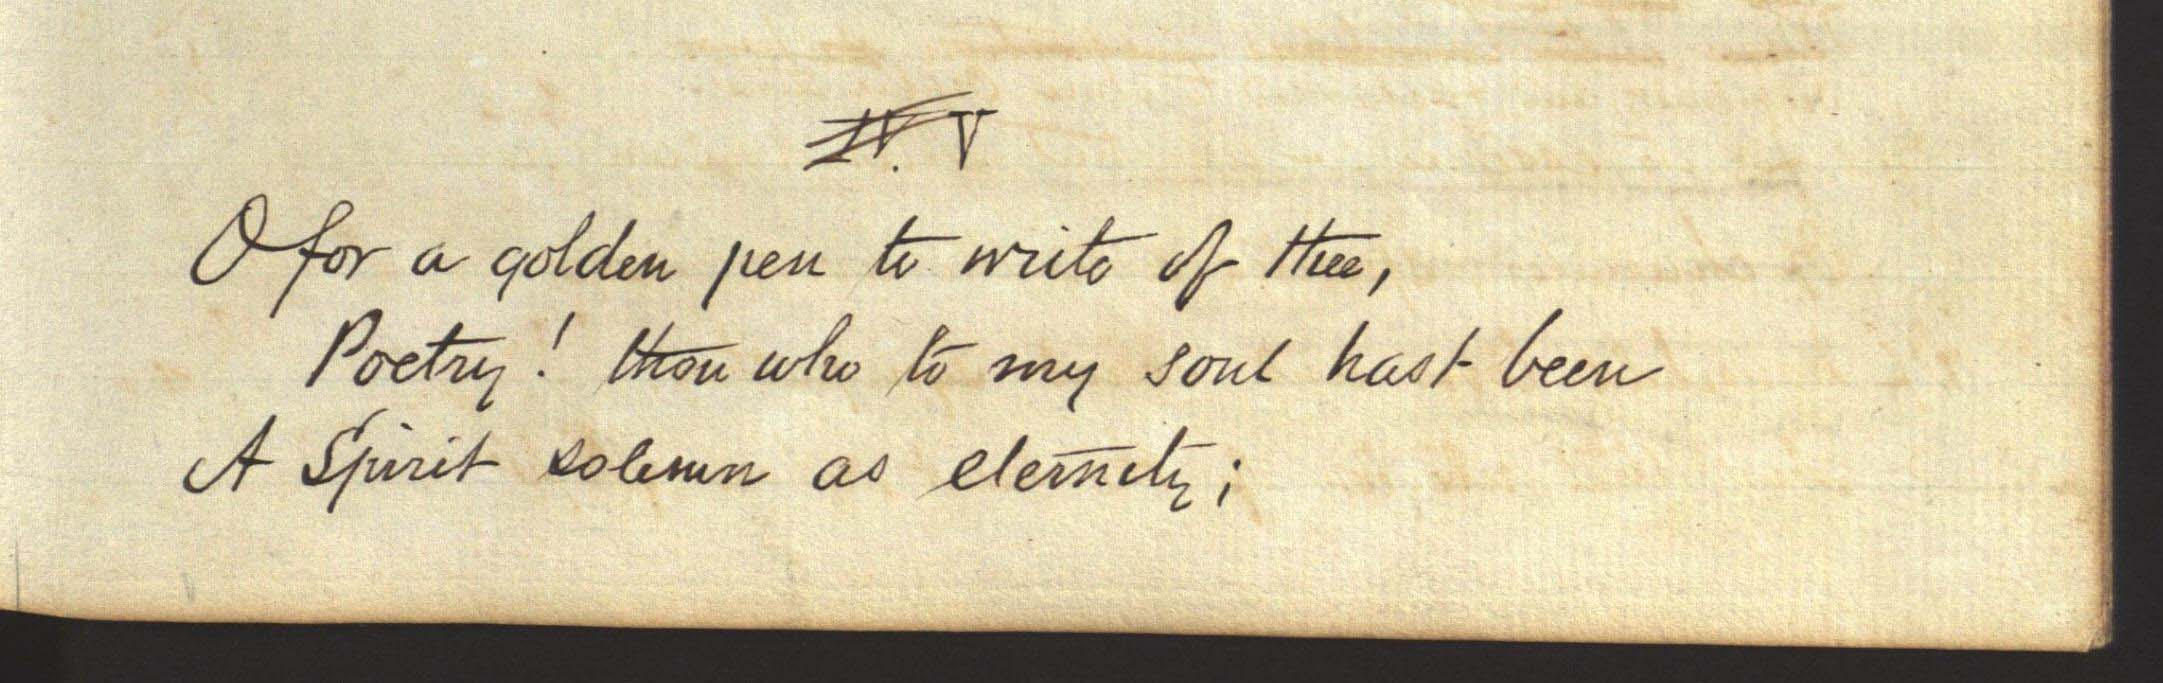 IV. V
O for a golden pen to write of thee,
Poetry! thou who to my soul hast been
A Spirit solemn as eternity;